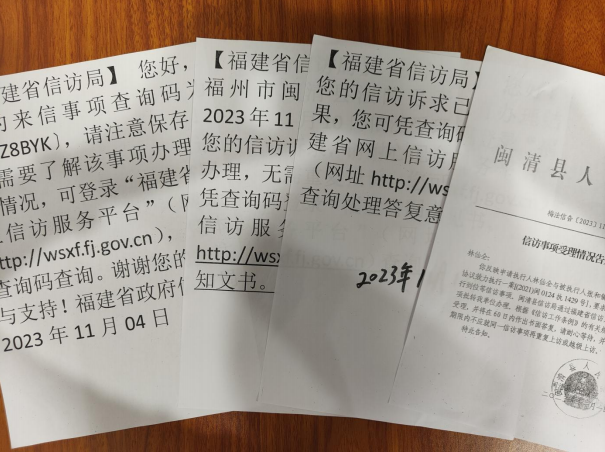 建省信访局】 您好,
来信事项查询码
Z8BYK〕, 请注意保存
需要了解该事项办理
情况, 可登录“福建省
信访服务平台”（
http://wsxf.fj.gov.cn),
查询码查询。谢谢您的
与支持! 福建省政府
2023 年 11 月 04 日
【福建省信访
福州市闽
2023 年 11
您的信访
办理, 无需
凭查询码
信访服务
http://wsx
知文书。
【福建省信访局】
您的信访诉求已
果, 您可凭查询码
建省网上信访服
（网址 http://ws
查询处理答复意
2023年1
闽清县人
信访事项受理情况告
林仙全:
你反映申请执行人林仙全与被执行人
行到位等信访事项,
特此告知。